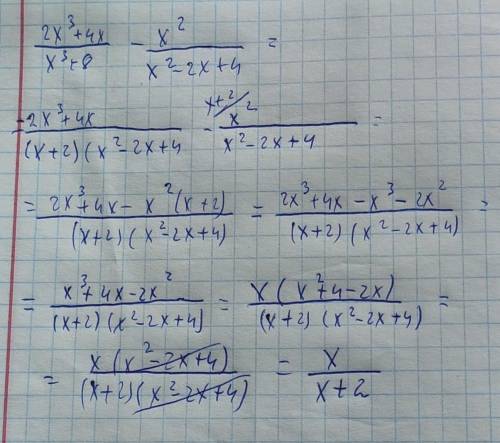 (2x³+4x)/(x³+8) - x²/(x²-2x+4) =
= (2x³+4x)/((x+2)(x²-2x+4) - x+2/ x²/(x²-2x+4) =
= (2x³+4x-x²(x+2))/((x+2)(x²-2x+4)) = (2x³+4x-x³-2x²)/((x+2)(x²-2x+4)) =
= (x³+4x-2x²)/((x+2)(x²-2x+4)) = x(x²+4-2x)/((x+2)(x²-2x+4)) =
= x(x²-2x+4)/((x+2)(x²-2x+4)) = x/(x+2)